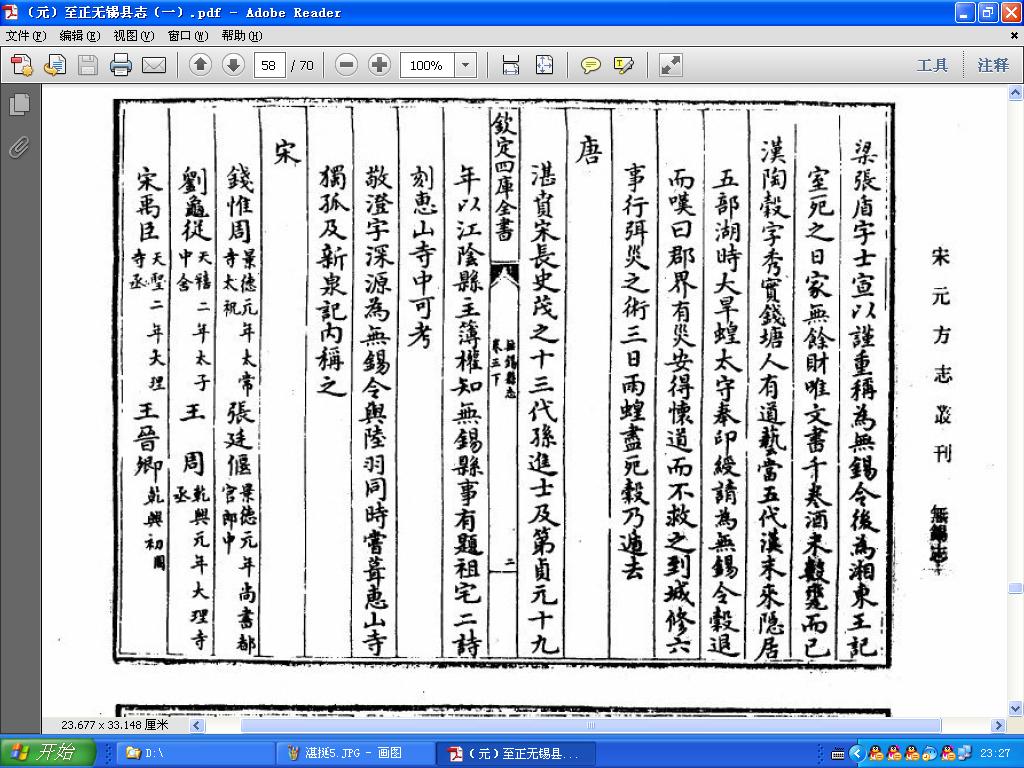 （元）至正无锡县志（一）.pdf - Adobe Reader
文件(F) 编辑(E) 视图(V) 窗口(W) 帮助(H)
58 / 70 100% 工具 注释
宋元方志叢刊 無錫志
梁張盾字士宣以謹重稱為無錫令後為湘東王記
室死之日家無餘財唯文書千卷酒米數甕而已
漢陶穀字秀實錢塘人有道藝當五代漢末來隱居
五部湖時大旱蝗太守奉印綬請為無錫令穀退
而嘆曰郡界有災安得懷道而不救之到城修六
事行弭災之術三日雨蝗盡死穀乃遁去
唐
湛賁宋長史茂之十三代孫進士及第貞元十九
欽定四庫全書 無錫縣志 卷三下 二
年以江陰縣主簿權知無錫縣事有題祖宅二詩
刻惠山寺中可考
敬澄字深源為無錫令與陸羽同時嘗葺惠山寺
獨孤及新泉記內稱之
宋
錢惟周 景德元年太常寺太祝 張廷偃 景德元年尚書都官郎中
劉龜從 天禧二年太子中舍 王周 乾興元年大理寺丞
宋禹臣 天聖二年大理寺丞 王晉卿 乾興初
23.677 x 33.148 厘米
开始 D:\ 湛挺5.JPG - 画图 （元）至正无锡县... 23:27